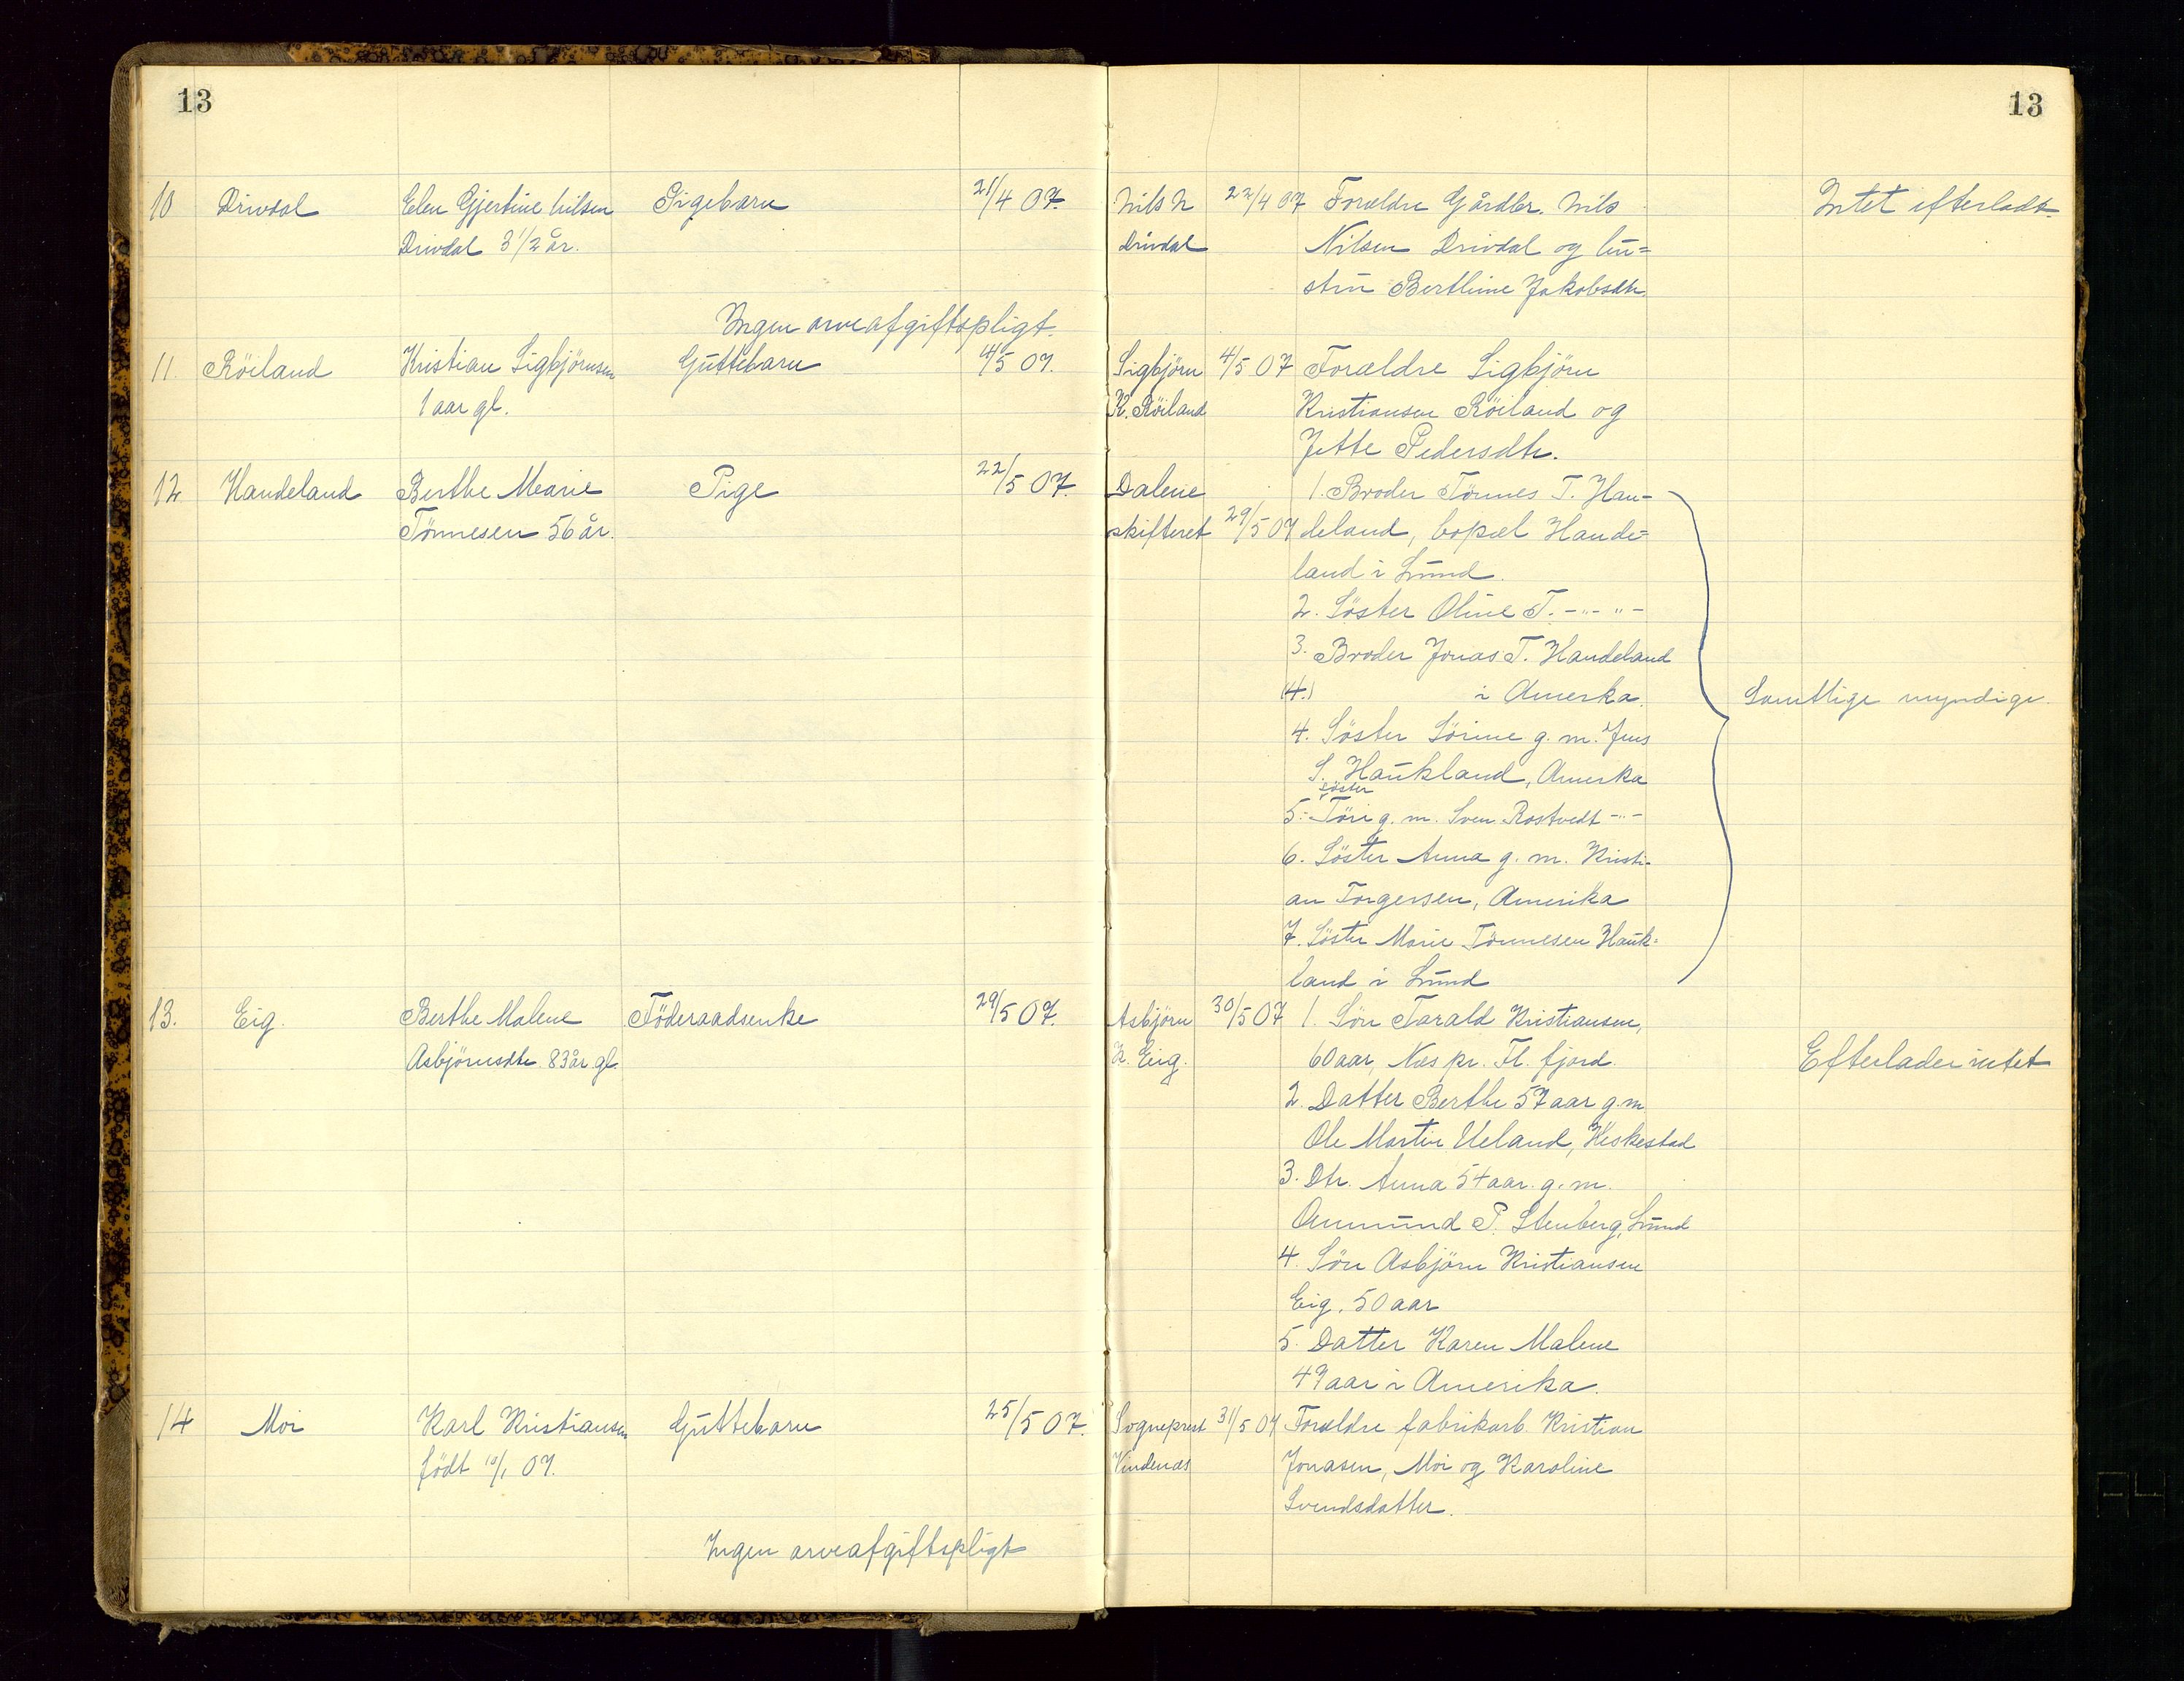 13
13
10 Drivdal Elen Gjertine Nilsen Pigebarn 21/4 07. Nils N 22/4 07 Forældre Gårdbr. Nils Intet efterladt.
Drivdal 3 1/2 år. Drivdal Nilsen Drivdal og hu=
stru Berthine Jakobsdtr.
Ingen arveafgiftspligt.
11. Röiland Kristian Sigbjörnsen Guttebarn 4/5 07. Sigbjörn 4/5 07 Forældre Sigbjörn
1 aar gl. K. Röiland Kristiansen Röiland og
Jette Pedersdtr.
12 Handeland Berthe Marie Pige 22/5 07. Dalene 1. Broder Tönnes T. Han-
Tönnesen 56 år. skifteret 29/5 07 deland, bopæl Hande=
land i Lund.
2. Söster Oline T. -"- "-
3. Broder Jonas T. Handeland
(4.) i Amerka. Samtlige myndige.
4. Söster Sörine g. m. Jens
S. Haukland, Amerka
söster
5. Töri g. m. Sven Rostvedt -"-
6. Söster Anna g. m. Kristi-
an Torgersen, Amerika
7. Söster Marie Tönnesen Hauk-
land i Lund
13. Eig. Berthe Malene Föderaadsenke 29/5 07. Asbjörn 30/5 07 1. Sön Tarald Kristiansen,
Asbjörnsdtr 83 år gl. K. Eig. 60 aar, Næs pr. Fl. fjord. Efterlader intet
2. Datter Berthe 57 aar g. m
Ole Martin Ueland, Heskestad
3. Dtr. Anna 54 aar. g. m.
Ommund P. Stenberg, Lund
4. Sön Asbjörn Kristiansen
Eig, 50 aar
5. Datter Karen Malene
47 aar i Amerika.
14 Moi Karl Kristiansen Guttebarn 25/5 07. Sogneprest 31/5 07 Forældre fabrikarb. Kristian
födt 10/1 07. Vindenæs Jonasen, Moi og Karoline
Svendsdatter.
Ingen arveafgiftspligt